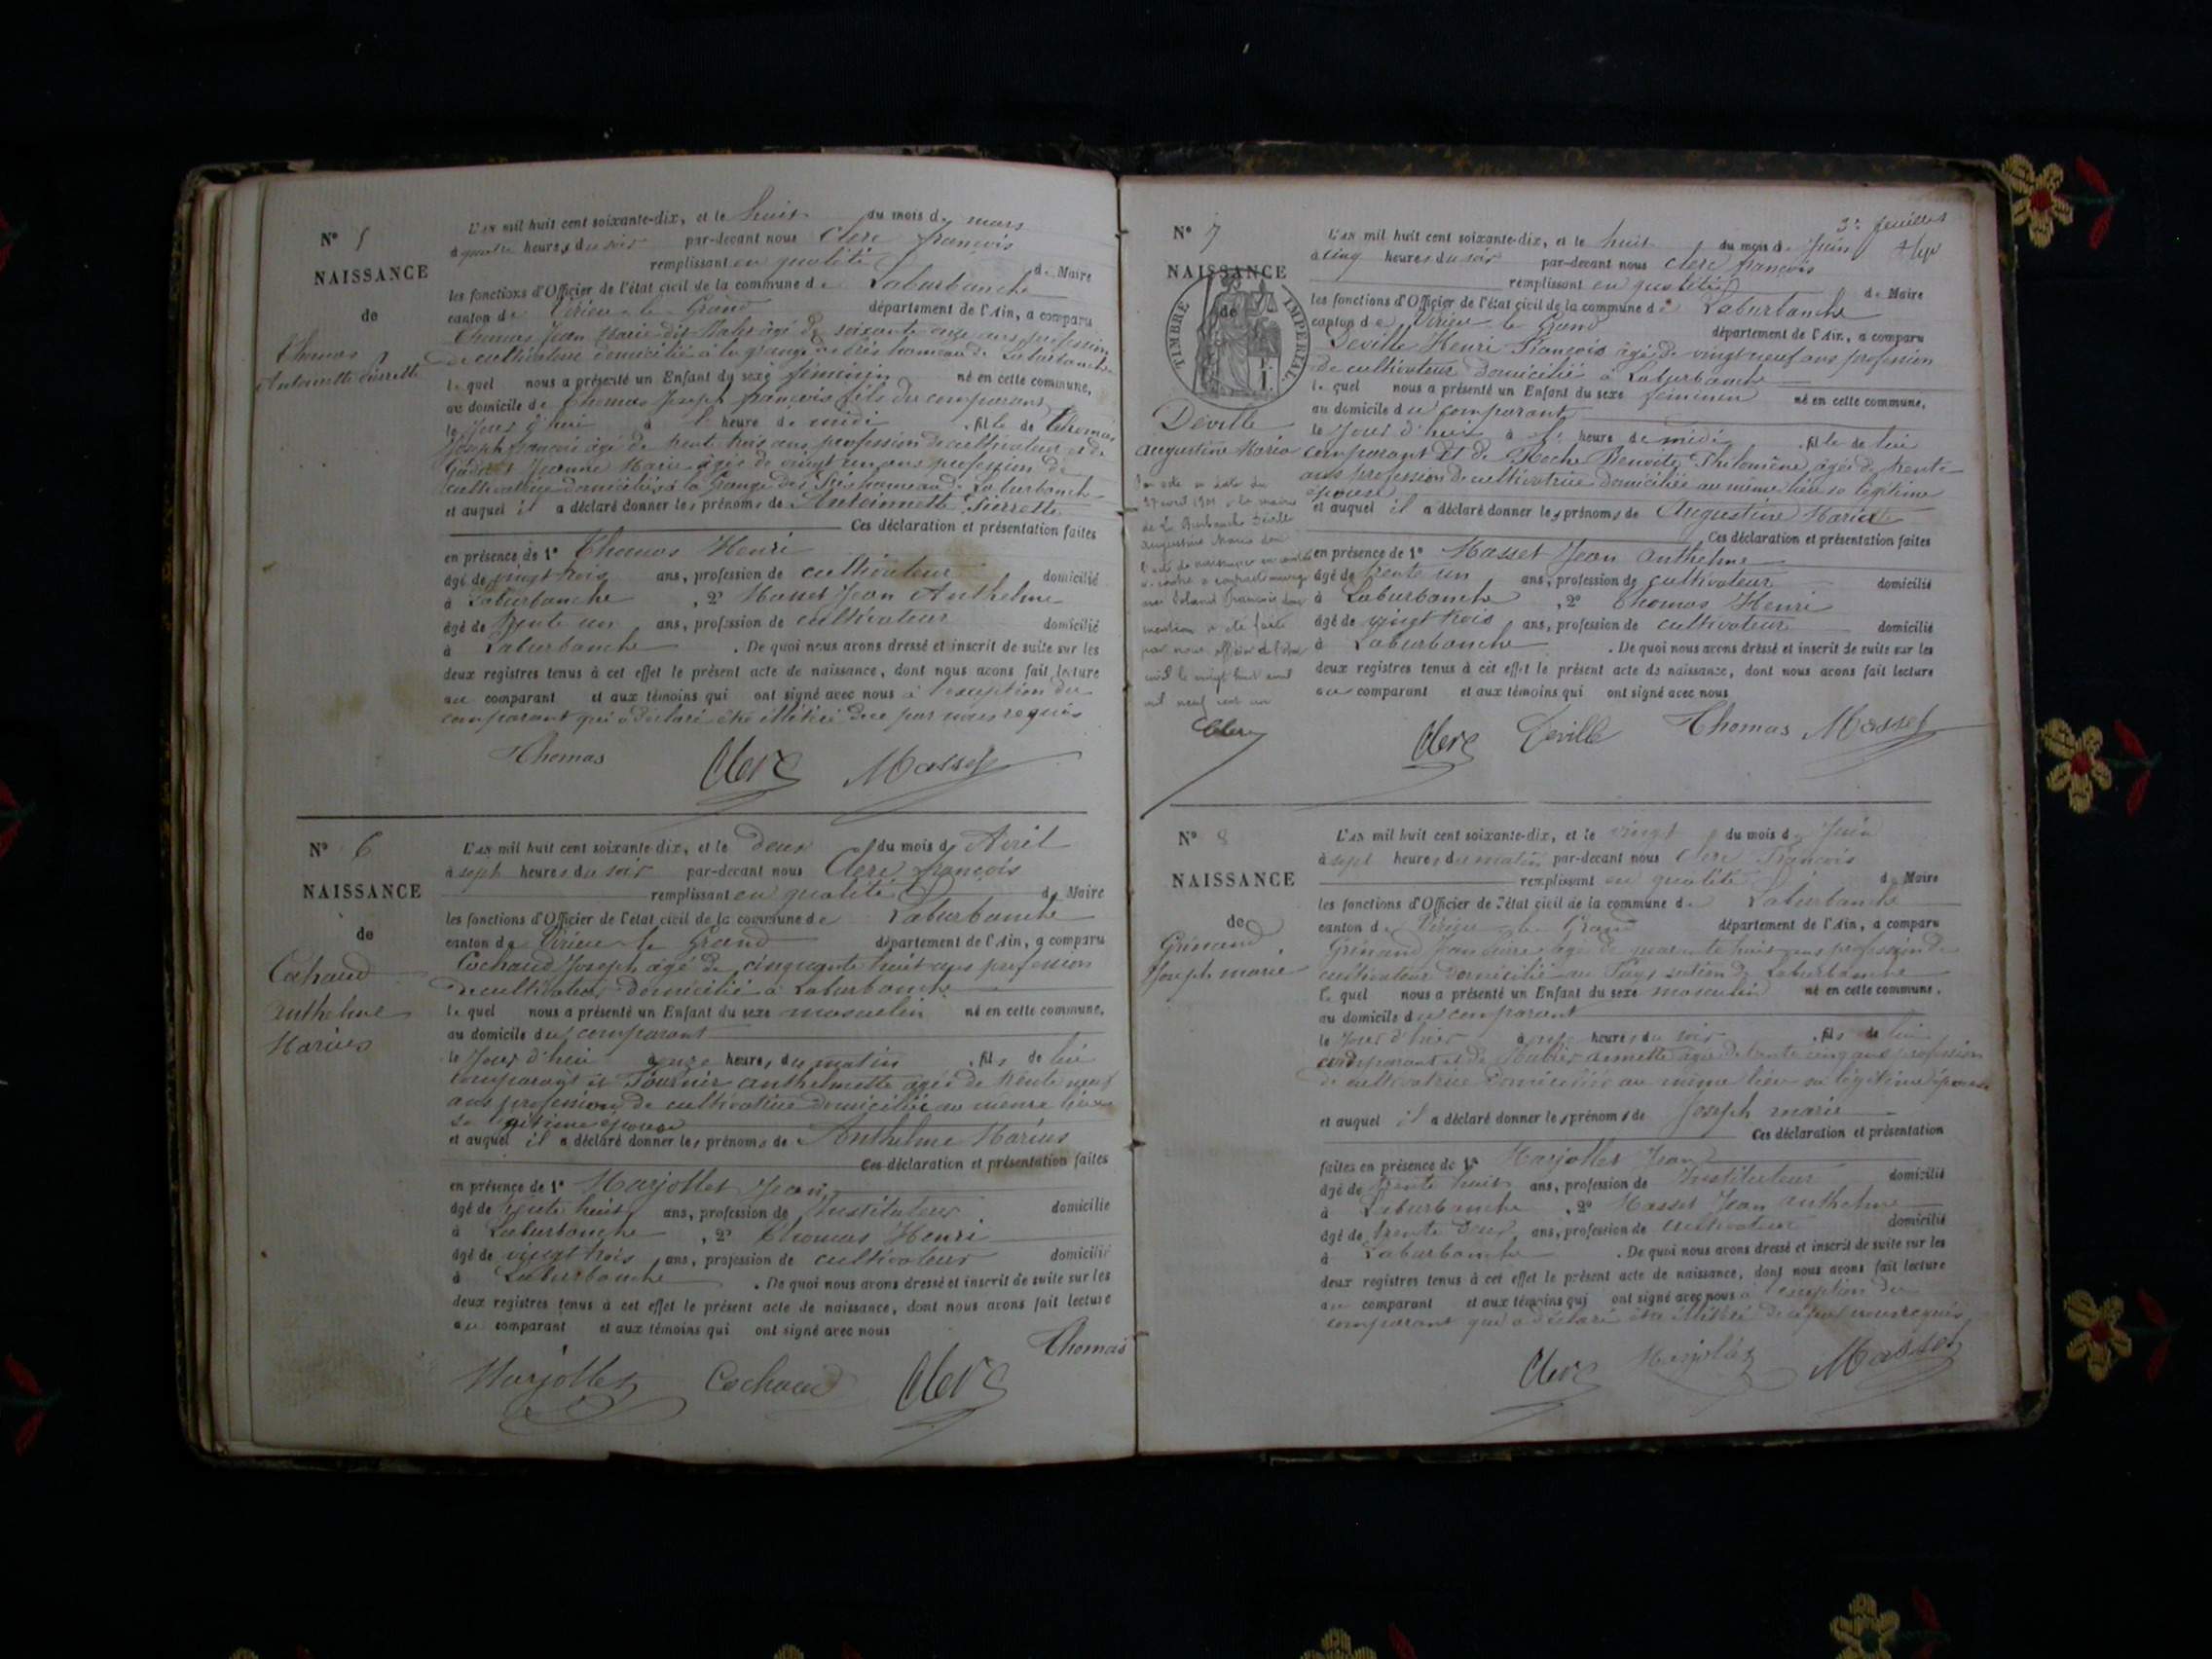 N° 5
NAISSANCE
de
Thomas
Antoinette Pierrette
L'AN mil huit cent soixante-dix, et le huit du mois de mars
à quatre heures du soir par-devant nous Clerc françois
remplissant en qualité de Maire
les fonctions d'Officier de l'état civil de la commune de Laburbanche
canton de Virieu-le-Grand département de l'Ain, a comparu
Thomas Jean Marie dit âgé de soixante onze ans profession
de cultivateur domicilié à la grange hameau de Laburbanche
lequel nous a présenté un Enfant du sexe féminin né en cette commune,
au domicile de Thomas Joseph françois fils du comparant
le jour d'hui à l' heure de midi , fille de Thomas
Joseph françois âgé de trente trois ans profession de cultivateur et de
Jeanne Marie âgée de vingt un ans profession de
cultivatrice domiciliés à la Grange des hameau de Laburbanche
et auquel il a déclaré donner les prénoms de Antoinnette Pierrette
Ces déclaration et présentation faites
en présence de 1° Thomas Henri
âgé de vingt trois ans, profession de cultivateur domicilié
à Laburbanche , 2° Masset Jean Anthelme
âgé de trente un ans, profession de cultivateur domicilié
à Laburbanche . De quoi nous avons dressé et inscrit de suite sur les
deux registres tenus à cet effet le présent acte de naissance, dont nous avons fait lecture
au comparant et aux témoins qui ont signé avec nous à l'exception du
comparant qui a déclaré être illitéré de ce par nous requis
Thomas Clerc Masset
N° 6
NAISSANCE
de
Cochaud
Anthelme
Marius
L'AN mil huit cent soixante-dix, et le deux du mois d'Avril
à sept heures du soir par-devant nous Clerc françois
remplissant en qualité de Maire
les fonctions d'Officier de l'état civil de la commune de Laburbanche
canton de Virieu-le-Grand département de l'Ain, a comparu
Cochaud Joseph âgé de cinquante huit ans profession
de cultivateur domicilié à Laburbanche
lequel nous a présenté un Enfant du sexe masculin né en cette commune,
au domicile du comparant
le jour d'hui à onze heures du matin , fils de lui
comparant et Fournier anthelmette âgée de trente neuf
ans profession de cultivatrice domiciliée au même lieu
sa légitime épouse
et auquel il a déclaré donner les prénoms de Anthelme Marius
Ces déclaration et présentation faites
en présence de 1° Marjollet Jean
âgé de trente huit ans, profession de Instituteur domicilié
à Laburbanche , 2° Thomas Henri
âgé de vingt trois ans, profession de cultivateur domicilié
à Laburbanche . De quoi nous avons dressé et inscrit de suite sur les
deux registres tenus à cet effet le présent acte de naissance, dont nous avons fait lecture
au comparant et aux témoins qui ont signé avec nous
Thomas
Marjollet Cochaud Clerc
3e feuillet
N° 7
NAISSANCE
de
TIMBRE IMPERIAL
Deville
Augustine Maria
L'AN mil huit cent soixante-dix, et le huit du mois de Juin
à cinq heures du soir par-devant nous Clerc françois
remplissant en qualité de Maire
les fonctions d'Officier de l'état civil de la commune de Laburbanche
canton de Virieu-le-Grand département de l'Ain, a comparu
Deville Henri François âgé de vingt neuf ans profession
de cultivateur domicilié à Laburbanche
lequel nous a présenté un Enfant du sexe féminin né en cette commune,
au domicile du comparant
le jour d'hui à l' heure de midi , fille de lui
comparant et de Roche Benoite Philomène âgée de trente
ans profession de cultivatrice domiciliée au même lieu sa légitime
épouse
et auquel il a déclaré donner les prénoms de Augustine Maria
Ces déclaration et présentation faites
en présence de 1° Masset Jean anthelme
âgé de trente un ans, profession de cultivateur domicilié
à Laburbanche , 2° Thomas Henri
âgé de vingt trois ans, profession de cultivateur domicilié
à Laburbanche . De quoi nous avons dressé et inscrit de suite sur les
deux registres tenus à cet effet le présent acte de naissance, dont nous avons fait lecture
au comparant et aux témoins qui ont signé avec nous
Clerc Deville Thomas Masset
Par acte en date du
27 avril 1901 à la mairie
de La Burbanche Deville
Augustine Maria dont
l'acte de naissance est
ci-contre a contracté mariage
avec François dont
mention a été faite
par nous officier de l'état
civil le vingt huit avril
mil neuf cent un
Clerc
N° 8
NAISSANCE
de
Grinand
Joseph marie
L'AN mil huit cent soixante-dix, et le vingt du mois de Juin
à sept heures du matin par-devant nous Clerc François
remplissant en qualité de Maire
les fonctions d'Officier de l'état civil de la commune de Laburbanche
canton de Virieu-le-Grand département de l'Ain, a comparu
Grinand âgé de quarante huit ans profession de
cultivateur domicilié au section de Laburbanche
lequel nous a présenté un Enfant du sexe masculin né en cette commune,
au domicile du comparant
le jour d'hier à heures du soir , fils de lui
comparant et de annette âgée de trente cinq ans profession
de cultivatrice domiciliée au même lieu sa légitime épouse
et auquel il a déclaré donner les prénoms de Joseph marie
Ces déclaration et présentation
faites en présence de 1° Marjollet Jean
âgé de trente huit ans, profession de Instituteur domicilié
à Laburbanche , 2° Masset Jean anthelme
âgé de trente deux ans, profession de cultivateur domicilié
à Laburbanche . De quoi nous avons dressé et inscrit de suite sur les
deux registres tenus à cet effet le présent acte de naissance, dont nous avons fait lecture
au comparant et aux témoins qui ont signé avec nous à l'exception du
comparant qui a déclaré être illitéré de ce par nous requis
Clerc Marjollet Masset